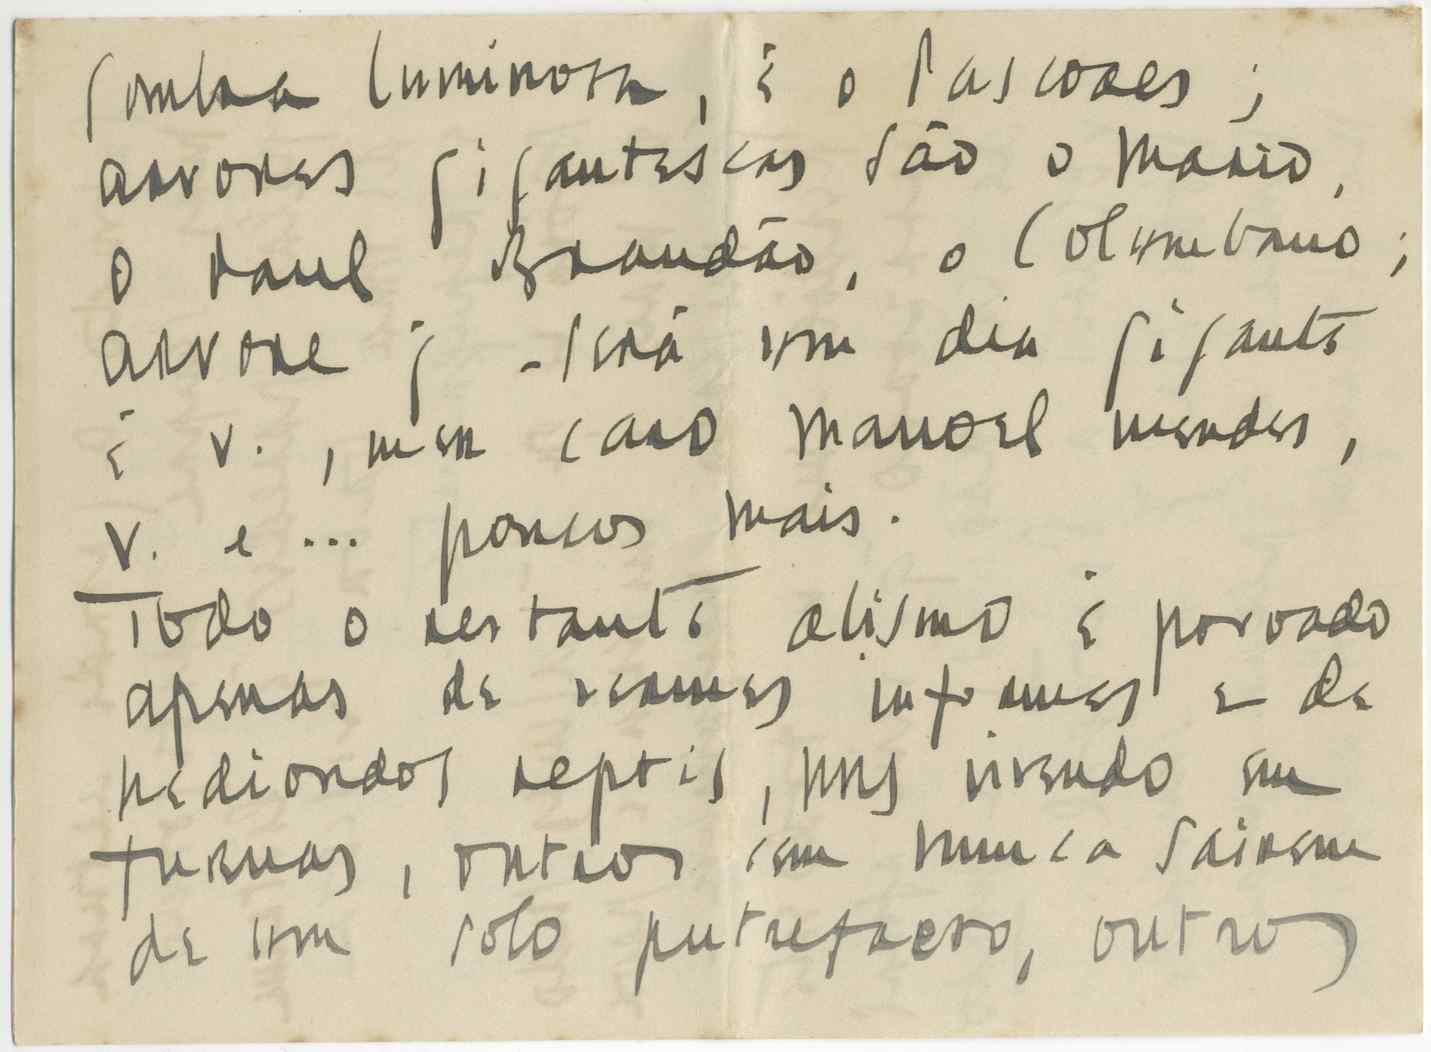 sombra luminosa, é o Pascoaes;
arvores gigantescas são o Mario,
o Raul Brandão, o Columbano;
arvore q̃ será um dia gigante
é v., meu caro Manoel Mendes,
v. e ... poucos mais.
Todo o restante abismo é povoado
apenas de vermes infames e de
hediondos reptis, uns vivendo em
furnas, outros sem nunca sairem
de um solo putrefacto, outros